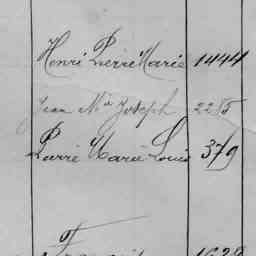 Henri Pierre Marie 1444
Jean Mie Joseph 2285
Pierre Marie Louis 379